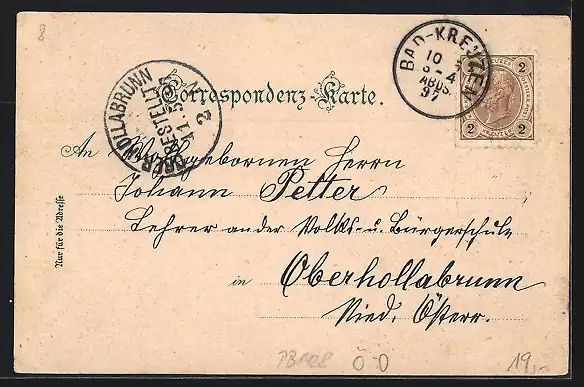 8
BAD-KREUZEN
10 5
3-4
ABDS.
97
OBERHOLLABRUNN
BESTELLT
2
2
2
2
KREUZER
Correspondenz-Karte.
An Wohlgebornen Herrn
Johann Petter
Lehrer an der Volks- u. Bürgerschule
in Oberhollabrunn
Nied. Österr.
Nur für die Adresse
ÖD
19,-